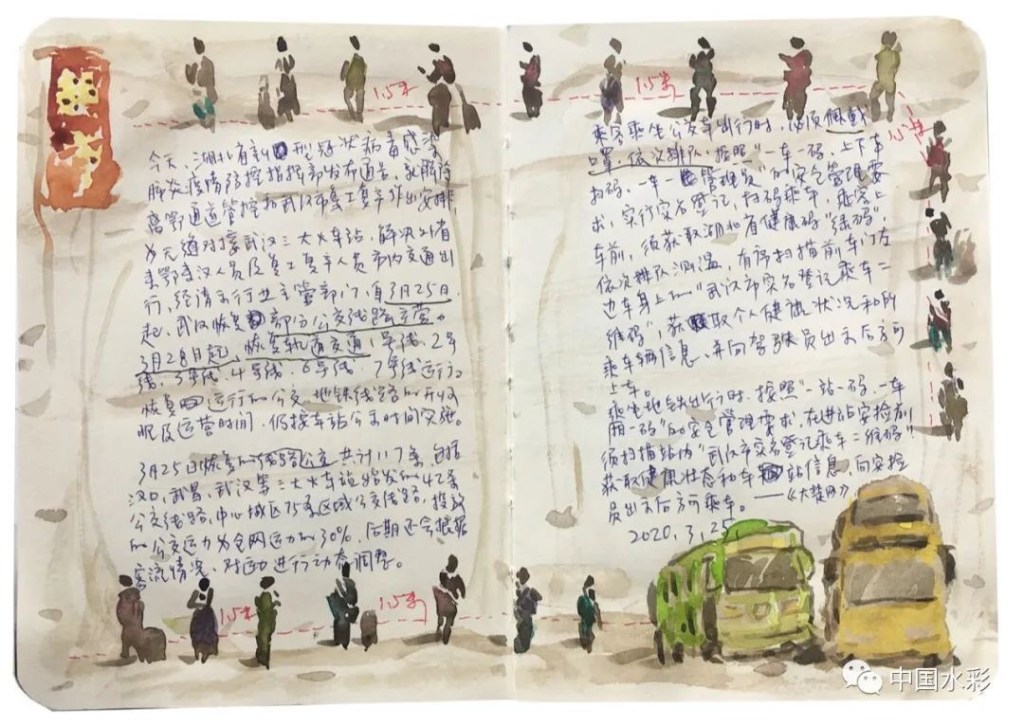 1.5米
今天,湖北省新型冠状病毒感染
肺炎疫情防控指挥部发布通告,就解除
离鄂通道管控和武汉市复工复产作出安排,
为无缝对接武汉三大火车站,解决外省
来鄂来汉人员及复工复产人员市内交通出
行,经请示行业主管部门,自3月25日
起,武汉恢复部分公交线路运营。
3月28日起,恢复轨道交通1号线、2号
线、3号线、4号线、6号线、7号线运行。
恢复运行的公交、地铁线路的开收
班及运营时间,仍按车站公示时间实施。
3月25日恢复的公交共计117条,包括
汉口、武昌、武汉等三大火车站始发的42条
公交线路,中心城区75条区域公交线路,投放
的公交运力为全网运力的30%,后期还会根据
客流情况,对运力进行动态调整。
1.5米
1.5米
1.5米
乘客乘坐公交车出行时,必须佩戴
口罩,依次排队,按照“一车一码、上下车
扫码、一车一管理员”的安全管理要
求,实行实名登记,扫码乘车,乘客上
车前,须获取湖北省健康码“绿码”,
依次排队测温,有序扫描前车门左
边车身上的“武汉市实名登记乘车二
维码”,获取个人健康状况和所
乘车辆信息,并向驾驶员出示后方可
上车。
乘坐地铁出行时,按照“一站一码、一车
厢一码”的安全管理要求,在进站安检前
须扫描站内“武汉市实名登记乘车二维码”
获取健康状态和车站信息,向安检
员出示后方可乘车。——《大楚网》
2020.3.25
中国水彩